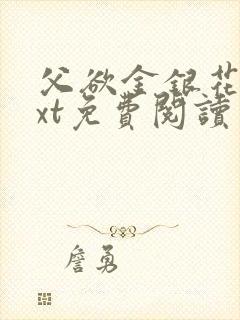 父欲金銀花
xt免費閱讀
詹勇